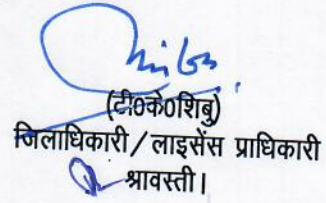 (टी०के०शिबु)
जिलाधिकारी / लाइसेंस प्राधिकारी
श्रावस्ती।